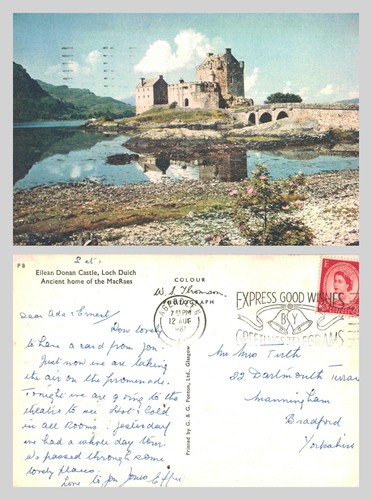 P 8
Sat.
Eilean Donan Castle, Loch Duich
Ancient home of the MacRaes
COLOUR
W. S. Thomson
PHOTOGRAPH
Printed by G. & G. Ponton, Ltd., Glasgow
Dear Ada & Ernest
How lovely
to have a card from you.
Just now we are taking
the air on the promenade.
Tonight we are going to the
theatre to see Hot & Cold
in all Rooms. Yesterday
we had a whole day
We passed through some
lovely places.
Love to you Effie
7 PM
12 AUG
EXPRESS GOOD WISHES
BY
GREETINGS TELEGRAMS
Mr Mrs Firth
22. Dartmouth Terrace
Manningham
Bradford
Yorkshire